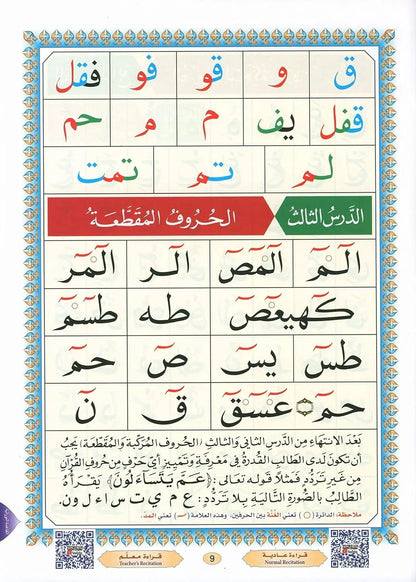 ق و قو فو فقل
قفل يف م م حم
لم تم تمت
الدَّرسُ الثَّالِثُ الحُرُوفُ المُقَطَّعَةُ
الٓمٓ الٓمٓصٓ الٓر الٓمٓر
كٓهيعٓصٓ طه طسٓمٓ
طسٓ يسٓ صٓ حمٓ
حمٓ عٓسٓقٓ قٓ نٓ
بَعْدَ الانْتِهَاءِ مِنَ الدَّرْسِ الثَّانِي وَالثَّالِثِ (الحُرُوفِ المُرَكَّبَةِ وَالمُقَطَّعَةِ) يَجِبُ
أَنْ تَكُونَ لَدَى الطَّالِبِ القُدْرَةُ فِي مَعْرِفَةِ وَتَمْيِيزِ أَيِّ حَرْفٍ مِنْ حُرُوفِ القُرْآنِ
مِنْ غَيْرِ تَرَدُّدٍ فَمَثَلًا قَوْلُهُ تَعَالَى: ﴿عَمَّ يَتَسَآءَلُونَ﴾ يَقْرَأُهُ
الطَّالِبُ بِالصُّورَةِ التَّالِيَةِ بِلَا تَرَدُّدٍ: ع م ي ت س ا ء ل و ن.
ملاحظة: الدائرة (○) تعني الغنة بين الحرفين، وهذه العلامة (ٓ) تعني المد.
قراءة معلم 9 قراءة عادية
Teacher's Recitation Normal Recitation